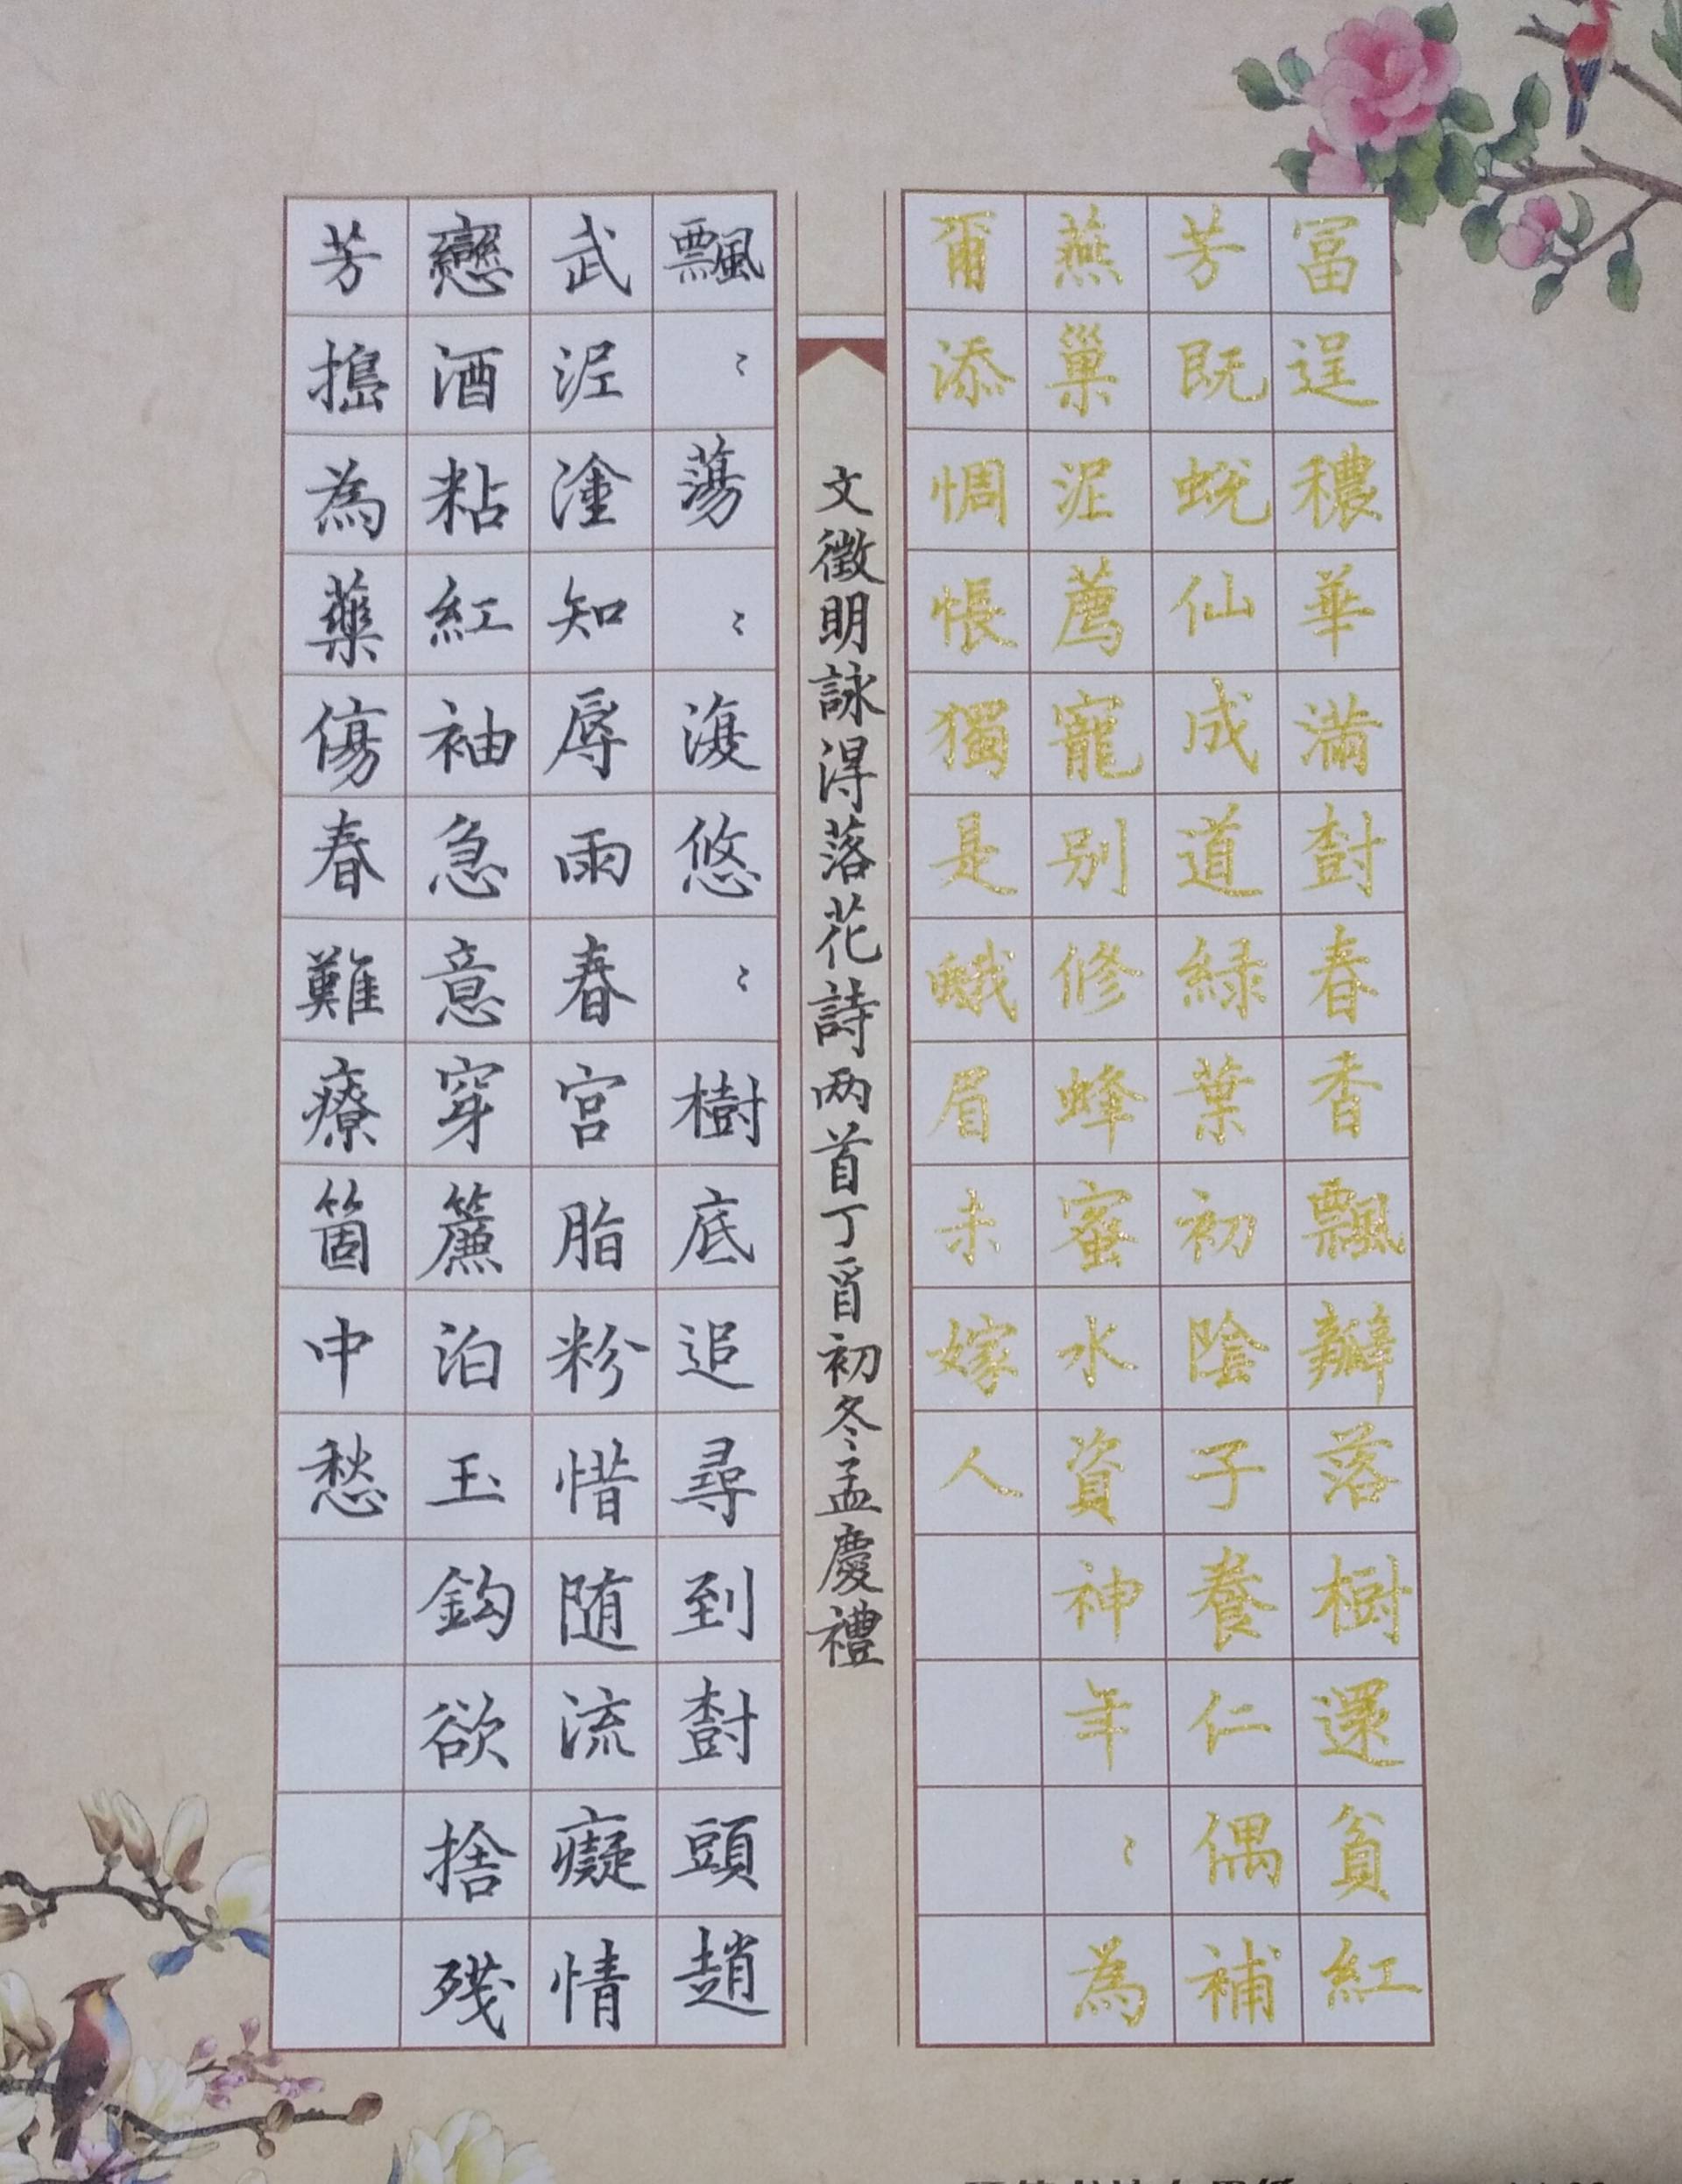 冨逞穠華滿尌春香飄瓣落樹還貧紅
芳既蛻仙成道綠葉初陰子養仁偶補
燕巢泥薦寵別修蜂蜜水資神年〻為
爾添惆悵獨是蛾眉未嫁人
文徵明詠得落花詩两首丁酉初冬孟慶禮
飄〻蕩〻復悠〻樹底追尋到尌頭趙
武泥塗知辱雨春宮脂粉惜随流癡情
戀酒粘紅袖急意穿簾泊玉鈎欲捨殘
芳搗為藥傷春難療箇中愁